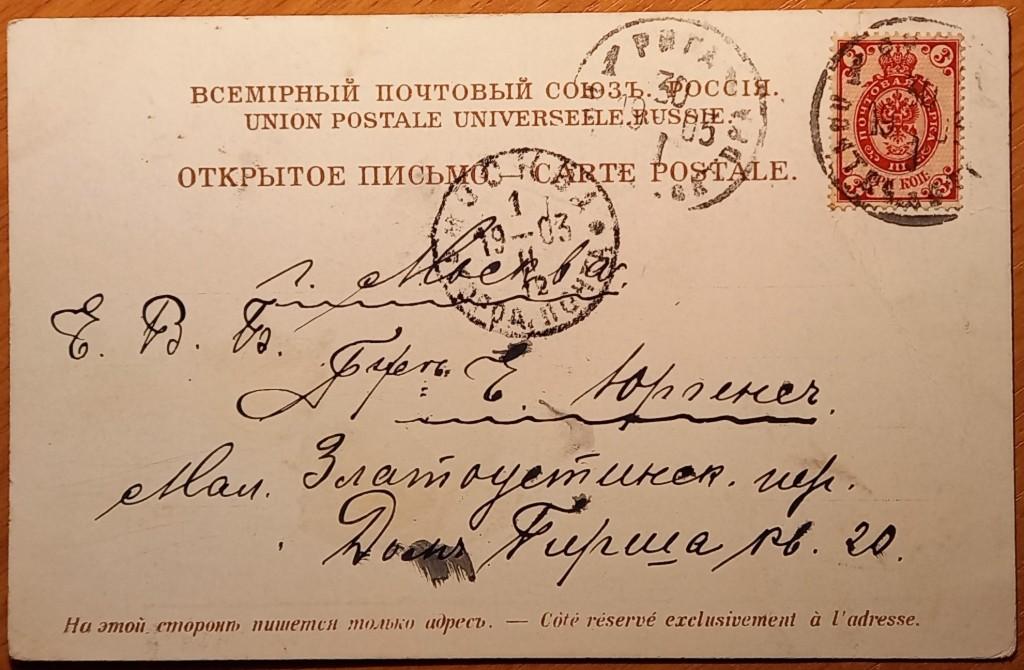 ВСЕМІРНЫЙ ПОЧТОВЫЙ СОЮЗЪ. РОССІЯ.
UNION POSTALE UNIVERSELLE. RUSSIE.
ОТКРЫТОЕ ПИСЬМО. — CARTE POSTALE.
РИГА
1
30
1
3 3
ПОЧТОВАЯ МАРКА
ТРИ КОП.
МОСКВА
1
19-03
II
12
г. Москва.
Е. В. Б.
Е. Юргенсъ.
Мал. Златоустинск. пер.
Домъ Гирша кв. 20.
На этой сторонѣ пишется только адресъ. — Côté réservé exclusivement à l'adresse.